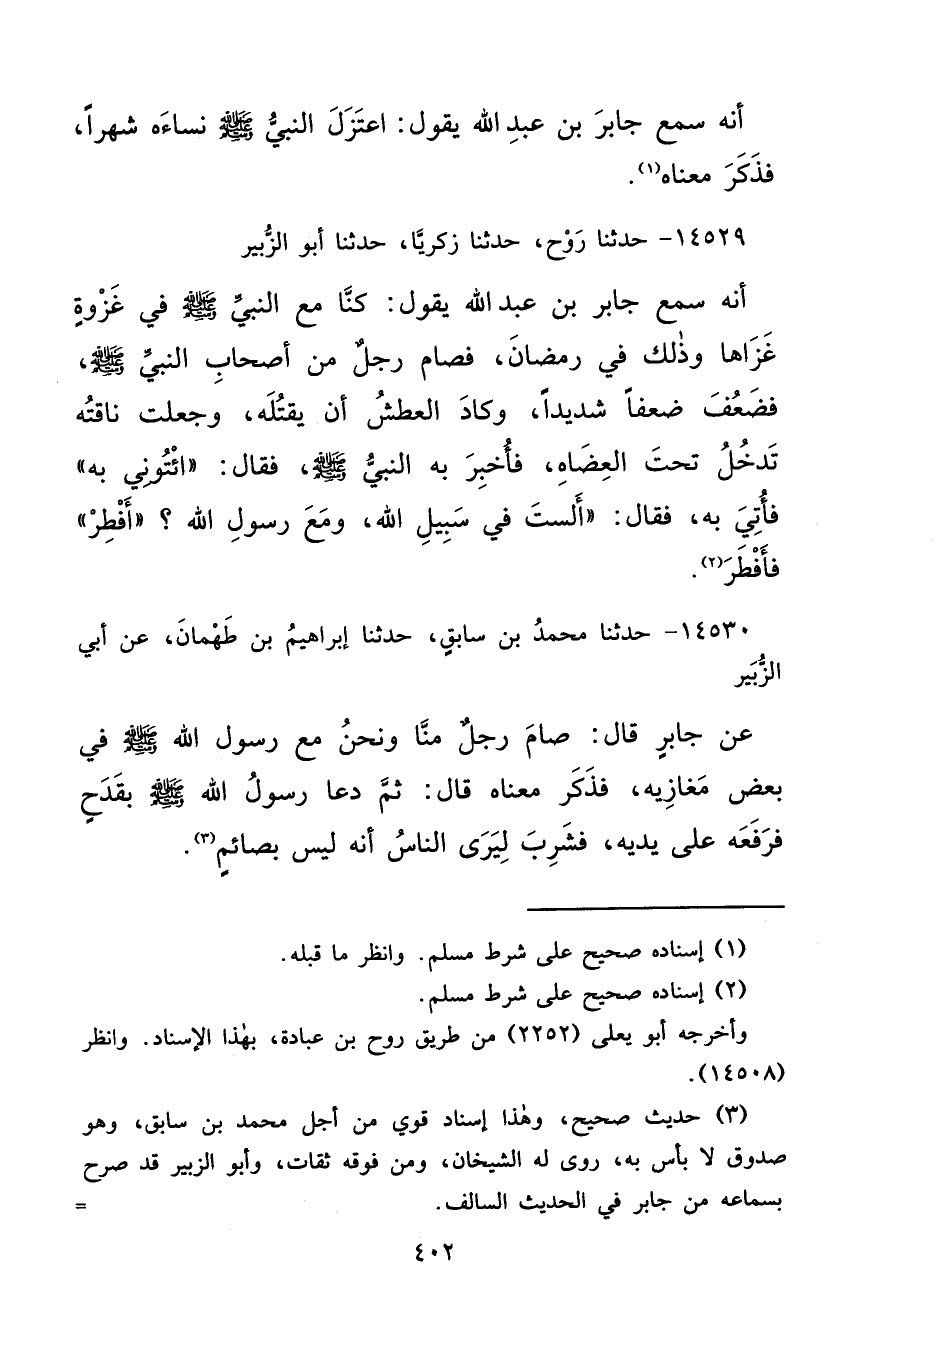 أنه سمع جابرَ بن عبدِ الله يقول: اعتَزَلَ النبيُّ ﷺ نساءَه شهراً،
فذَكَرَ معناه(١).
١٤٥٢٩- حدثنا رَوْح، حدثنا زكريَّا، حدثنا أبو الزُّبير
أنه سمع جابر بن عبد الله يقول: كنَّا مع النبيِّ ﷺ في غَزْوةٍ
غَزَاها وذٰلك في رمضانَ، فصام رجلٌ من أصحابِ النبيِّ ﷺ،
فضَعُفَ ضعفاً شديداً، وكادَ العطشُ أن يقتُلَه، وجعلت ناقتُه
تَدخُلُ تحتَ العِضَاهِ، فأُخبِرَ به النبيُّ ﷺ، فقال: «ائْتُوني به»
فأُتِيَ به، فقال: «أَلستَ في سَبِيلِ الله، ومَعَ رسولِ الله ؟ «أَفْطِرْ»
فأَفْطَرَ(٢).
١٤٥٣٠- حدثنا محمدُ بن سابقٍ، حدثنا إبراهيمُ بن طَهْمانَ، عن أبي
الزُّبَير
عن جابرٍ قال: صامَ رجلٌ منَّا ونحنُ مع رسول الله ﷺ في
بعض مَغازِيه، فذَكَر معناه قال: ثمَّ دعا رسولُ الله ﷺ بقَدَحٍ
فرَفَعَه على يديه، فشَرِبَ لِيَرَى الناسُ أنه ليس بصائمٍ(٣).
(١) إسناده صحيح على شرط مسلم. وانظر ما قبله.
(٢) إسناده صحيح على شرط مسلم.
وأخرجه أبو يعلى (٢٢٥٢) من طريق روح بن عبادة، بهٰذا الإسناد. وانظر
(١٤٥٠٨).
(٣) حديث صحيح، وهٰذا إسناد قوي من أجل محمد بن سابق، وهو
صدوق لا بأس به، روى له الشيخان، ومن فوقه ثقات، وأبو الزبير قد صرح
بسماعه من جابر في الحديث السالف. =
٤٠٢